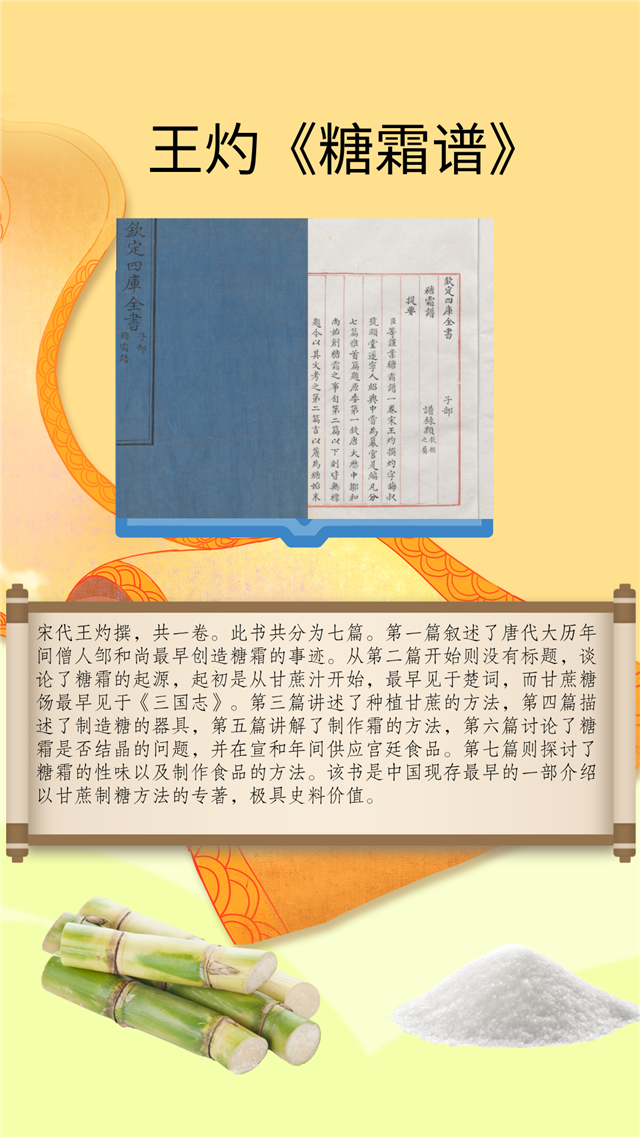 王灼《糖霜谱》
欽定四庫全書 子部
糖霜譜
欽定四庫全書 子部
糖霜譜 譜録類
提要
臣等謹案糖霜譜一卷宋王灼撰灼字晦叔
號頤堂遂寧人紹興中嘗為幕官是編凡分
七篇惟首篇題原委第一叙唐大歴中鄒和
尚始創糖霜之事自第二篇以下則皆無標
題今以其文考之第二篇言以蔗為糖始末
宋代王灼撰，共一卷。此书共分为七篇。第一篇叙述了唐代大历年
间僧人邹和尚最早创造糖霜的事迹。从第二篇开始则没有标题，谈
论了糖霜的起源，起初是从甘蔗汁开始，最早见于楚词，而甘蔗糖
饧最早见于《三国志》。第三篇讲述了种植甘蔗的方法，第四篇描
述了制造糖的器具，第五篇讲解了制作霜的方法，第六篇讨论了糖
霜是否结晶的问题，并在宣和年间供应宫廷食品。第七篇则探讨了
糖霜的性味以及制作食品的方法。该书是中国现存最早的一部介绍
以甘蔗制糖方法的专著，极具史料价值。